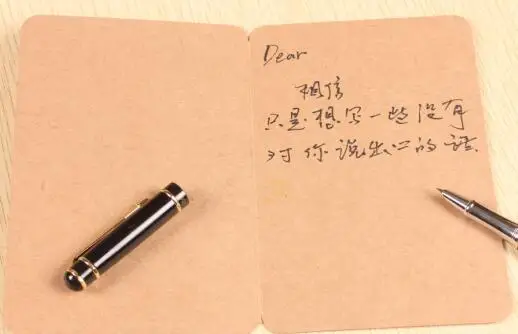 Dear
相信
只是想写一些没有
对你说出口的话